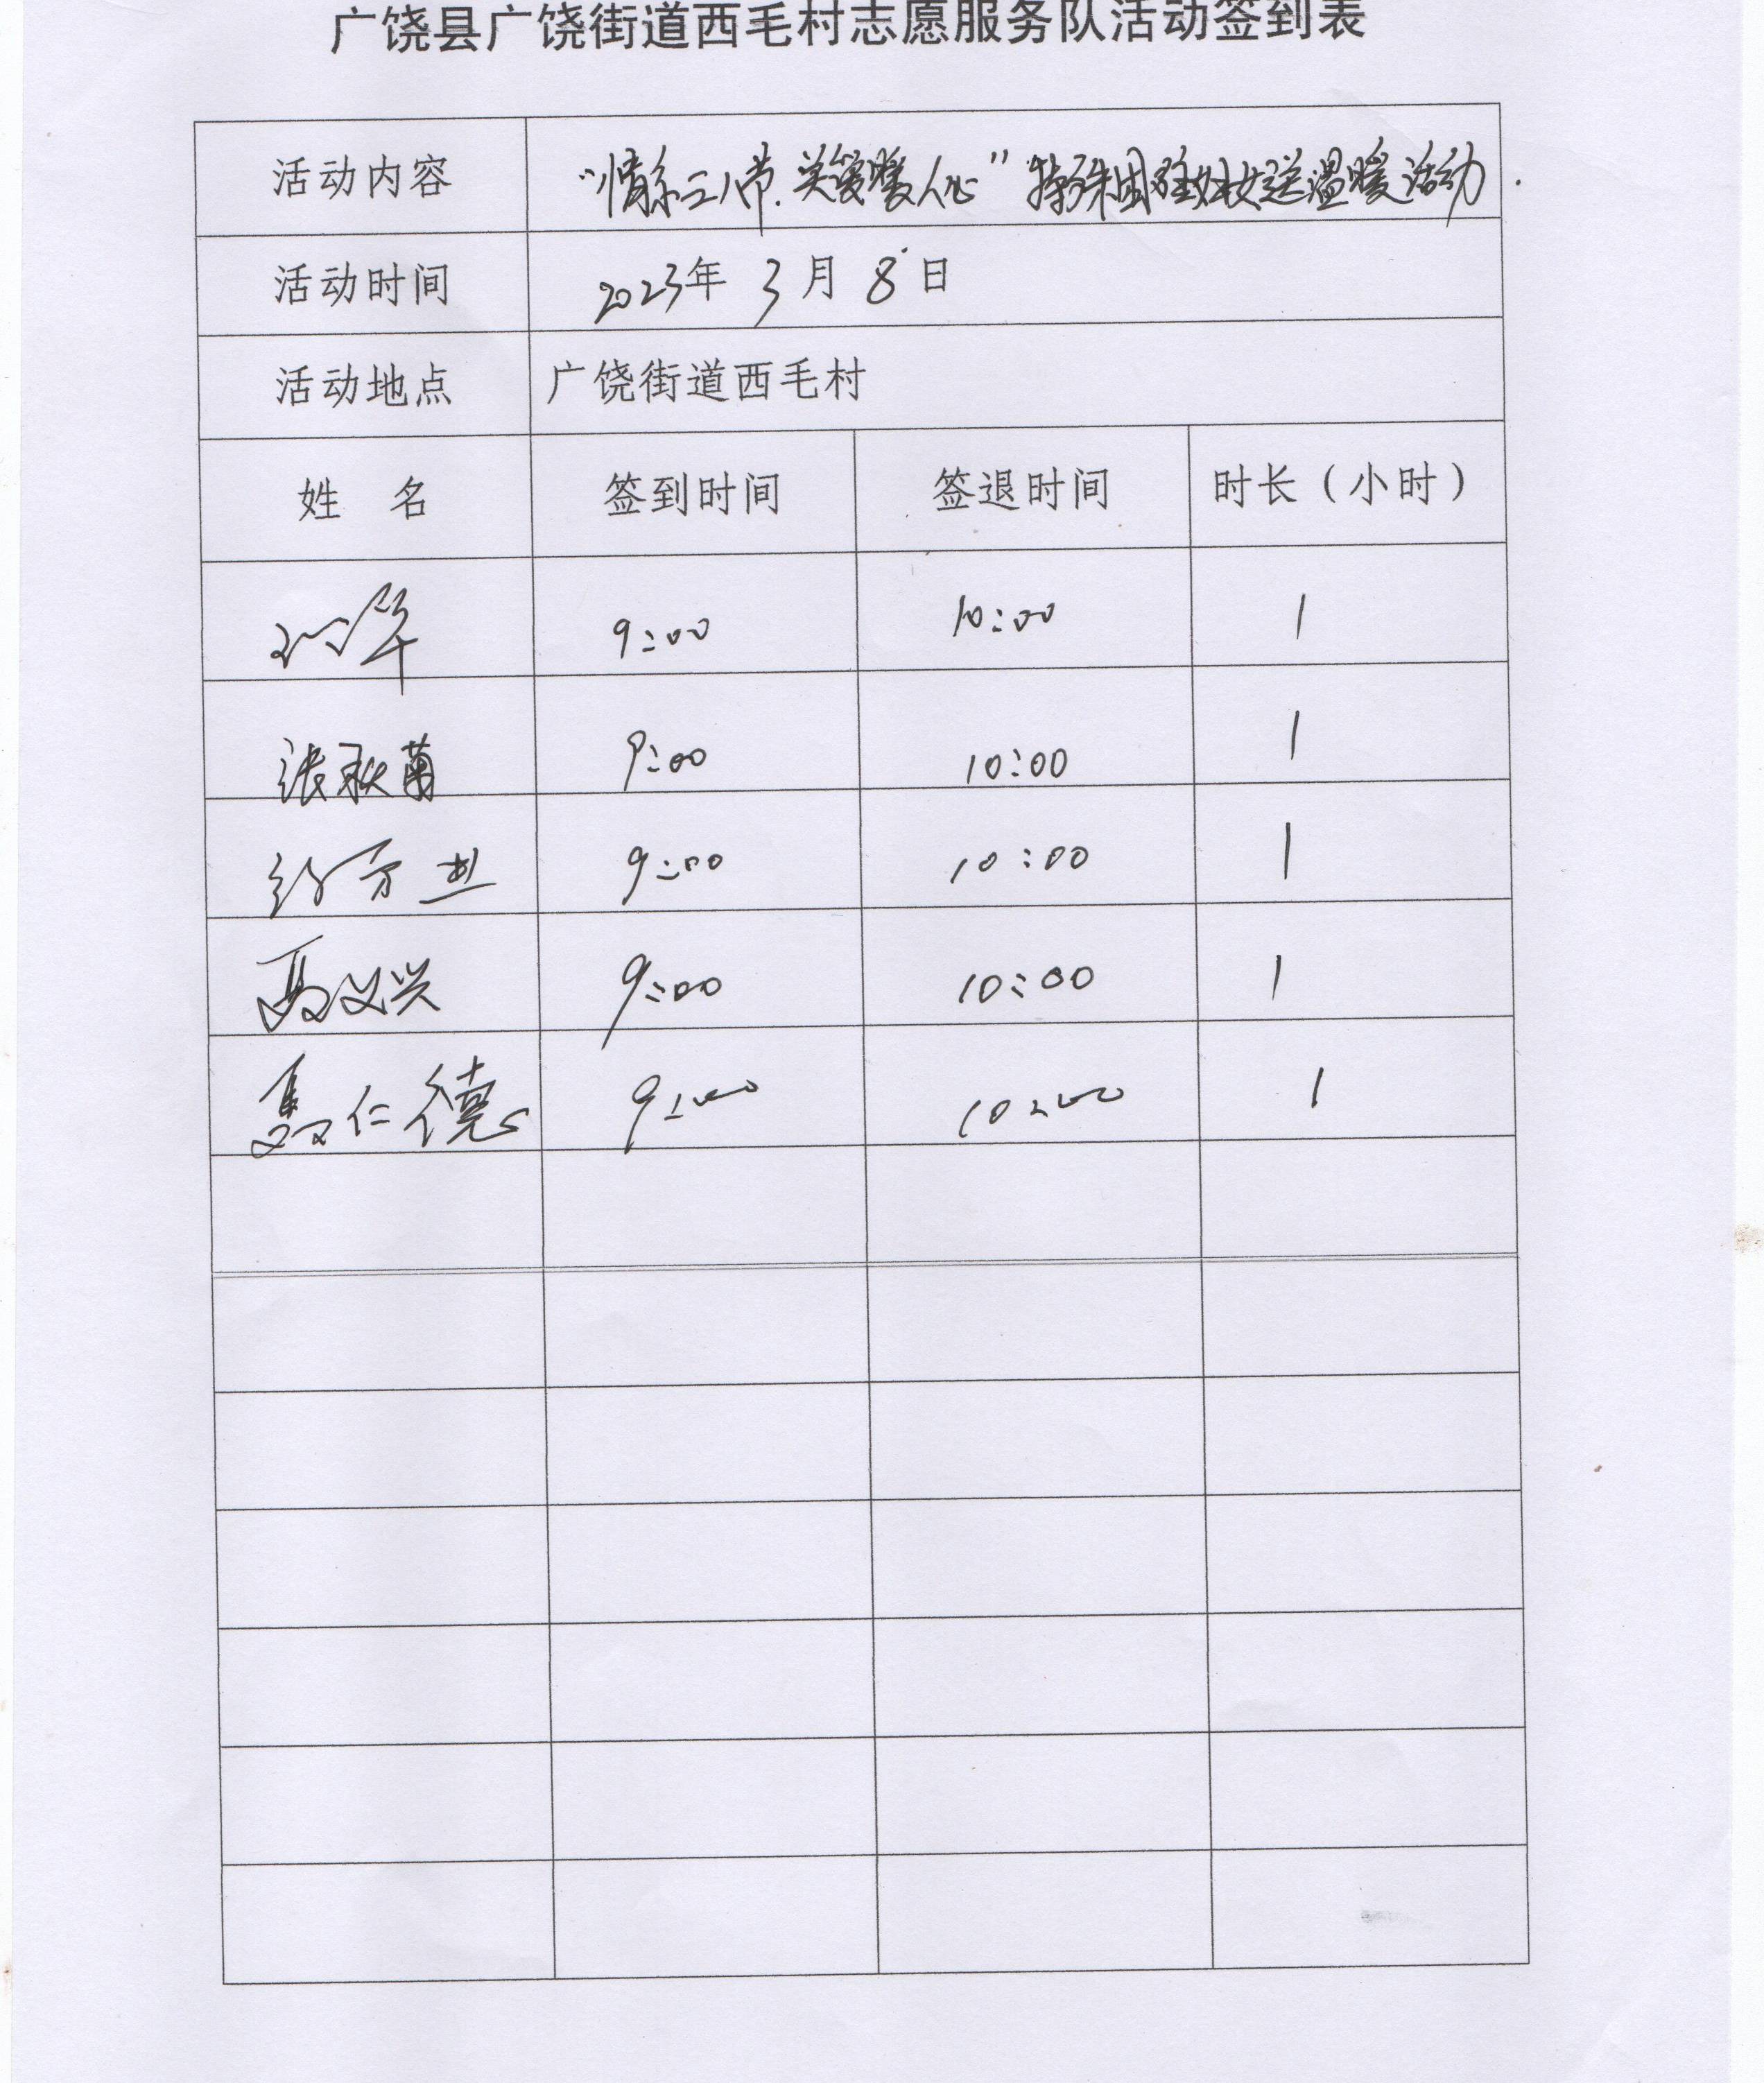 广饶县广饶街道西毛村志愿服务队活动签到表
活动内容 “情系三八节.关爱暖人心”特殊困难妇女送温暖活动.
活动时间 2023年 3 月 8 日
活动地点 广饶街道西毛村
姓 名 签到时间 签退时间 时长（小时）
9:00 10:00 1
张秋菊 9:00 10:00 1
9:00 10:00 1
聂义兴 9:00 10:00 1
聂仁德 9:00 10:00 1